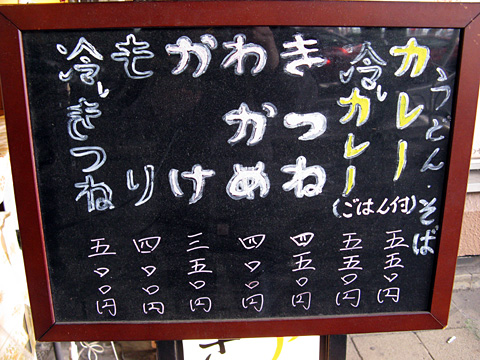 うどん・そば
カレー 五五〇円
冷しカレー (ごはん付) 五五〇円
きつね 四五〇円
わかめ 四〇〇円
かけ 三五〇円
もり 四〇〇円
冷しきつね 五〇〇円